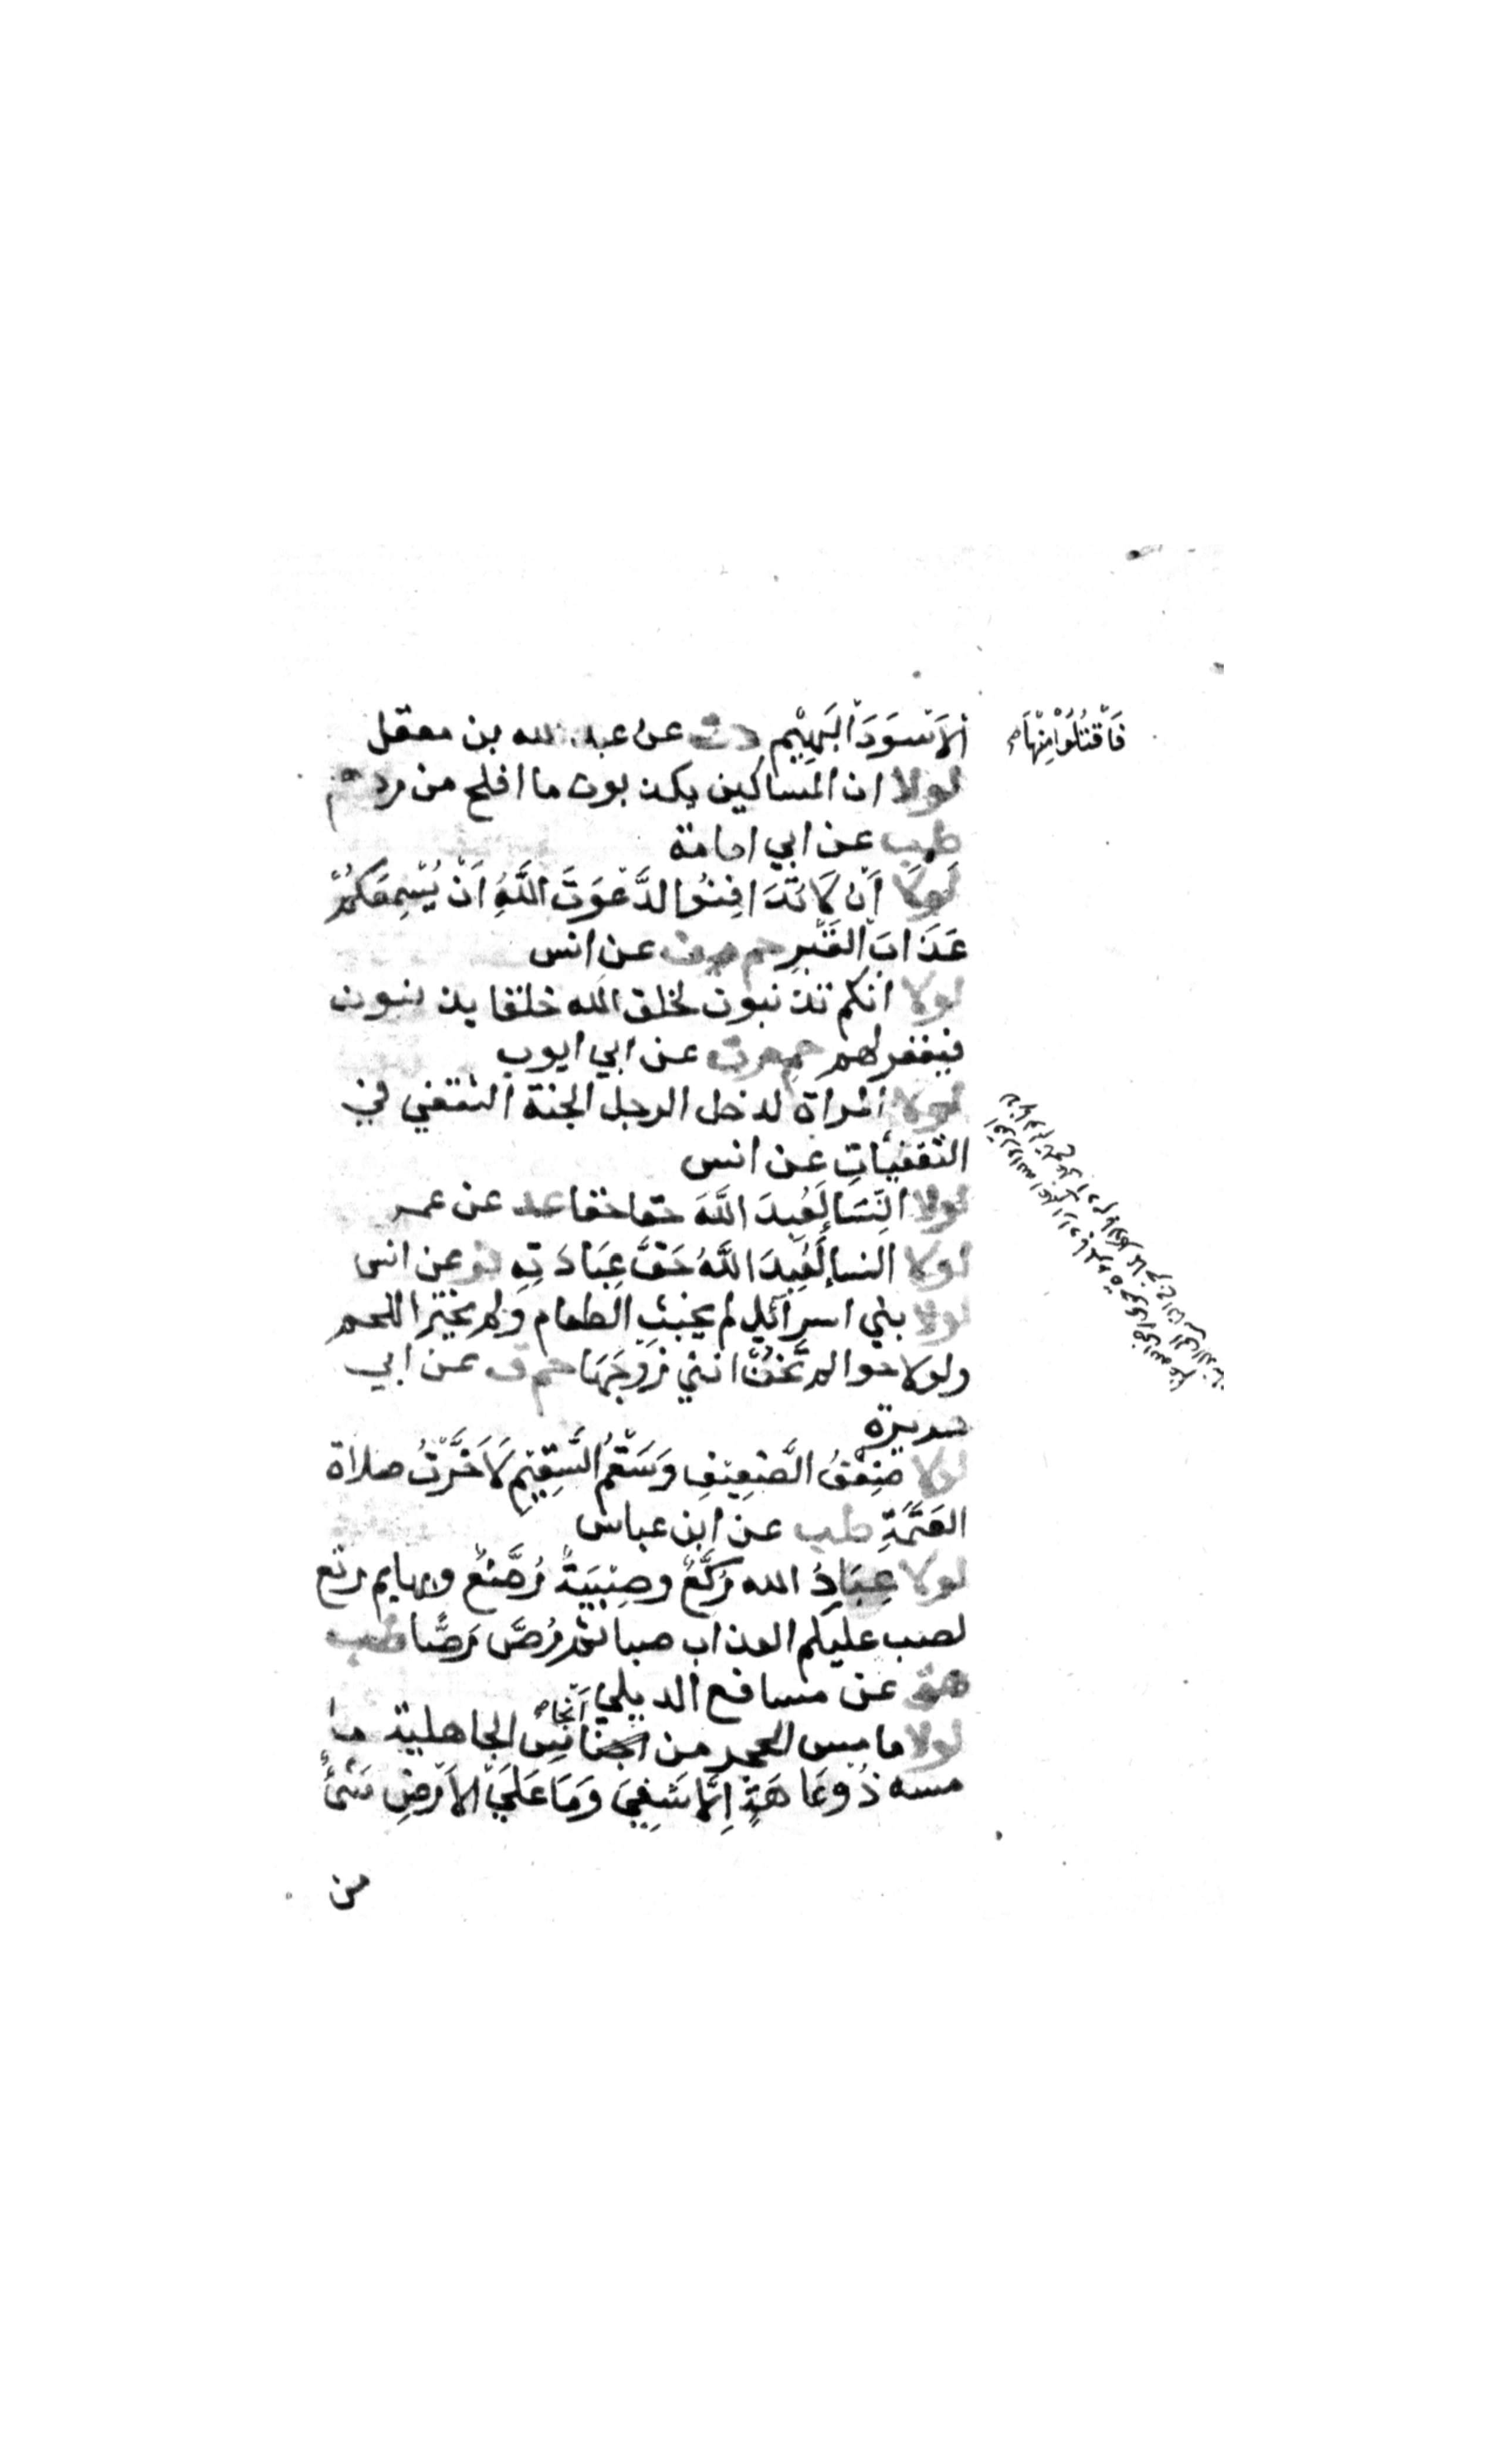 فَاقْتُلُوْا مِنْهَا
اْلاَسْوَدَ اْلبَهِيْمِ دت عن عبد الله بن معقل
لولا ان المساكين يكذبون ما افلح من ردهم
طب عن ابي امامة
لَوْلاَ اَنْ لاَ تَدَافِنُوا لدَّعَوْتَ اللَّهُ اَنْ يُسْمِعَكُمْ
عَذَابَ اْلقَبْرِ حم من عن انس
لولا انكم تذنبون لخلق الله خلقا يذنبون
فيغفر لهم حم مت عن ابي ايوب
لولا المراة لدخل الرجل الجنة الثقفي في
الثقفيات عن انس
لولا النِّسَا لَعُبِدَ اللَّهَ حقا حقا عد عن عمر
لولا النسا لَعُبِدَ اللَّهُ حَقَّ عِبَادَتِهِ فر عن انس
لولا بني اسرائيل لم يخبث الطعام ولم يخنز اللحم
ولولا حوا لم تَخُنْ انثي زَوْجَهَا حم ق عن ابي
هريرة
لولا ضِعْفُ الضَّعِيفِ وَسَقْمُ السَّقِيْمِ لاَخَّرْتُ صلاة
العَتَمَةِ طب عن ابن عباس
لولا عِبَادُ الله رُكَّعٌ وصِبْيَةٌ رُضَّعٌ وبهايم رتع
لصب عليكم العذاب صبا ثم رُصَّ رَصًّا طب
هق عن مسافع الديلي
لولا ما مس الحجر من اَنْجَاسِ الجاهلية ما
مسه ذُوعَاهَةٍ اِلَّا شَفِيَ وَمَا عَلَيْ الاَرْضِ شَئٌ
من